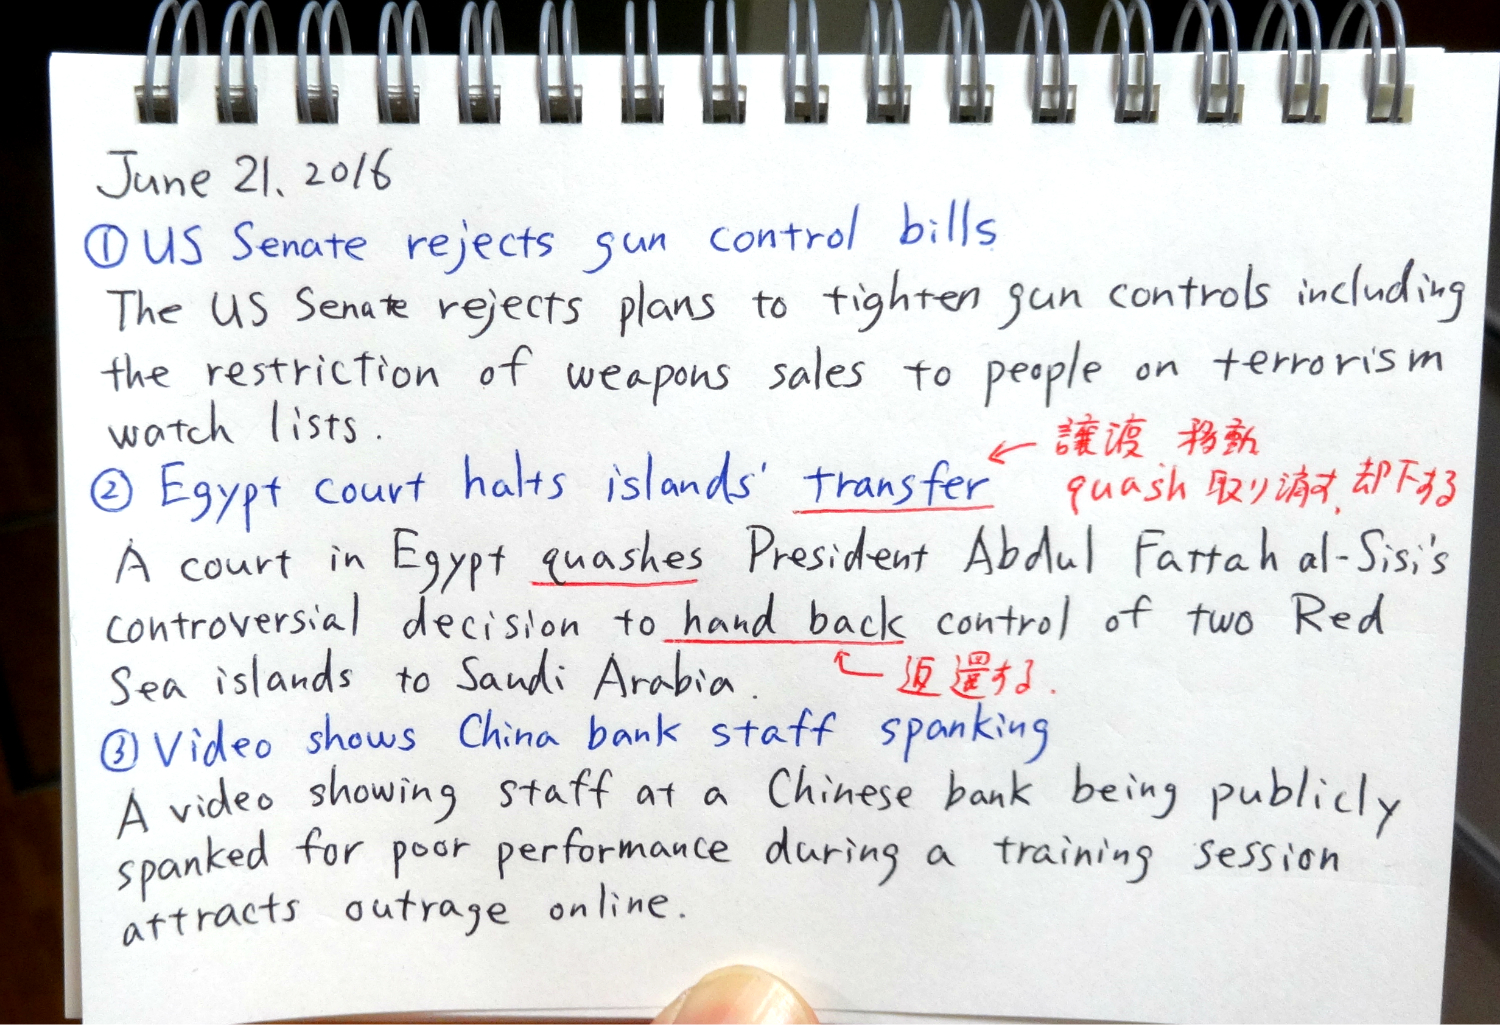 June 21, 2016
① US Senate rejects gun control bills
The US Senate rejects plans to tighten gun controls including
the restriction of weapons sales to people on terrorism
watch lists.
← 譲渡 移動
② Egypt court halts islands' transfer
quash 取り消す, 却下する
A court in Egypt quashes President Abdul Fattah al-Sisi's
controversial decision to hand back control of two Red
Sea islands to Saudi Arabia.
返還する.
③ Video shows China bank staff spanking
A video showing staff at a Chinese bank being publicly
spanked for poor performance during a training session
attracts outrage online.